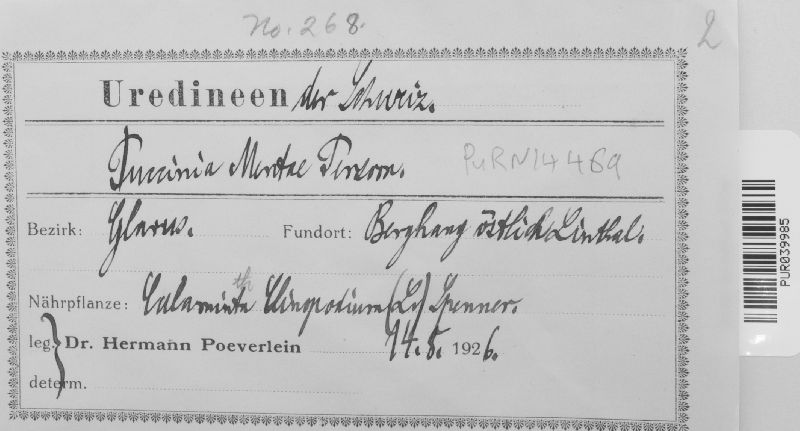 No. 268.
2
Uredineen der Schweiz.
Puccinia Mentae Persoon. PURN14469
Bezirk: Glarus. Fundort: Berghang östlich Linthal.
Nährpflanze: Calaminta th Clinopodium (L.) Spenner.
leg. Dr. Hermann Poeverlein 14. 8. 1926.
determ.
PUR039985